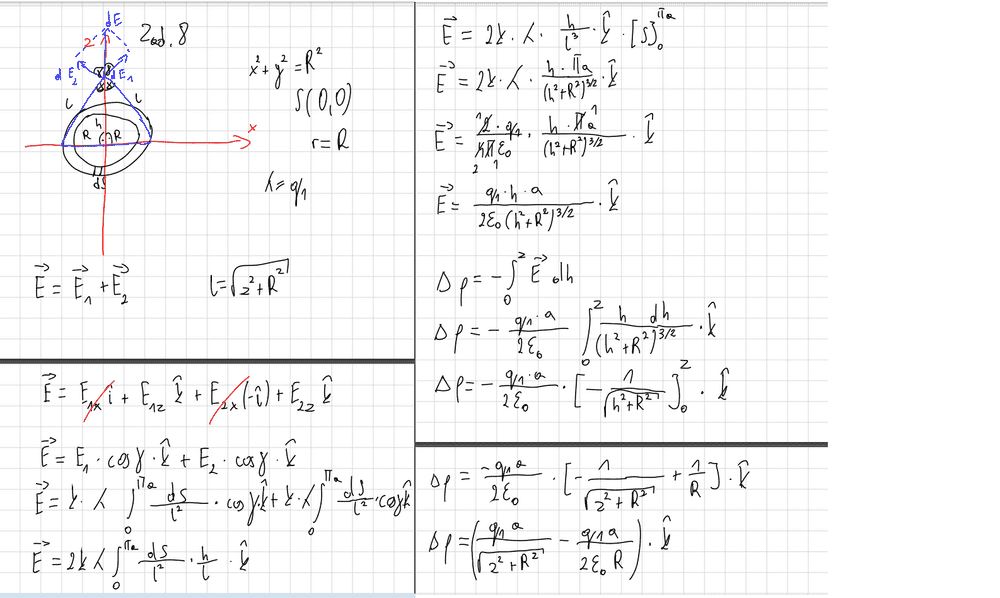 Zad. 8
dE
z
dE₂ dE₁
l l
h
R R
x
ds
x² + y² = R²
S(0,0)
r = R
λ = q₁
E⃗ = E⃗₁ + E⃗₂
l = √(z² + R²)
E⃗ = E₁ₓ î + E₁z k̂ + E₂ₓ (-î) + E₂z k̂
E⃗ = E₁ · cosγ · k̂ + E₂ · cosγ · k̂
E⃗ = k · λ ∫₀^{πa} ds/l² · cosγ · k̂ + k · λ ∫₀^{πa} ds/l² · cosγ k̂
E⃗ = 2kλ ∫₀^{πa} ds/l² · h/l · k̂
E⃗ = 2k · λ · h/l³ · k̂ · [s]₀^{πa}
E⃗ = 2k · λ · h · πa/(h² + R²)^{3/2} · k̂
E⃗ = 2 · q₁/4πε₀ · h · πa/(h² + R²)^{3/2} · k̂
E⃗ = q₁ · h · a/2ε₀(h² + R²)^{3/2} · k̂
Δρ = - ∫₀^z E⃗ dh
Δρ = - q₁ · a/2ε₀ ∫₀^z h dh/(h² + R²)^{3/2} · k̂
Δρ = - q₁ · a/2ε₀ · [- 1/√(h² + R²)]₀^z · k̂
Δρ = -q₁a/2ε₀ · [- 1/√(z² + R²) + 1/R] · k̂
Δρ = (q₁a/√(z² + R²) - q₁a/2ε₀R) · k̂